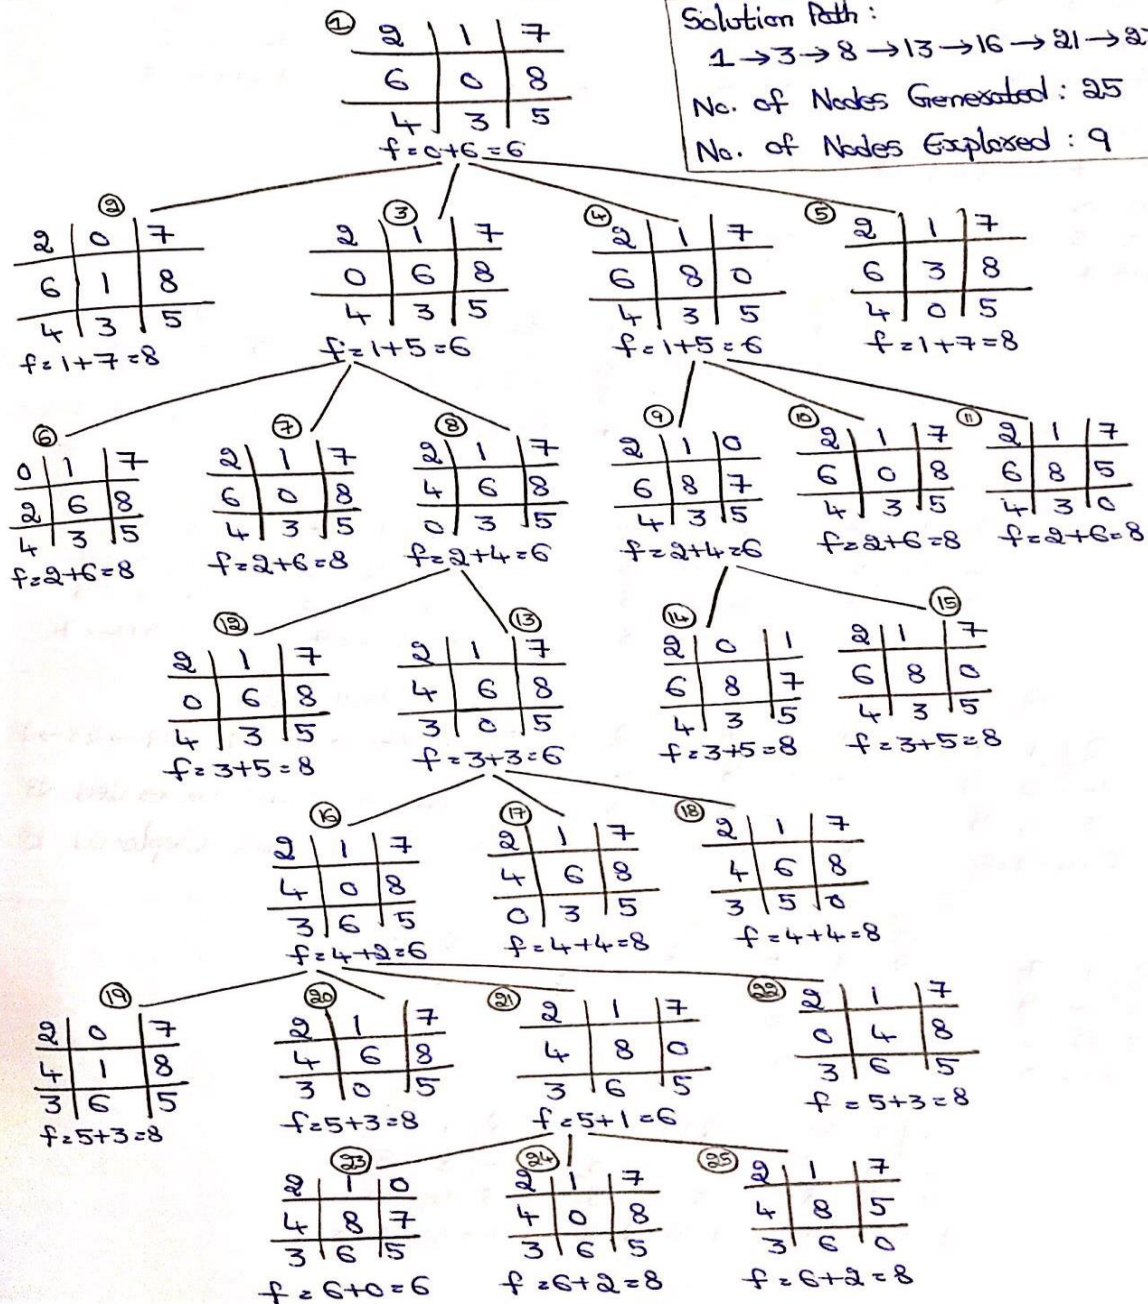 ① 2 1 7
6 0 8
4 3 5
f=0+6=6
Solution Path :
1→3→8→13→16→21→2
No. of Nodes Generated : 25
No. of Nodes Explored : 9
② ③ ④ ⑤
2 0 7
6 1 8
4 3 5
f=1+7=8
2 1 7
0 6 8
4 3 5
f=1+5=6
2 1 7
6 8 0
4 3 5
f=1+5=6
2 1 7
6 3 8
4 0 5
f=1+7=8
⑥
0 1 7
2 6 8
4 3 5
f=2+6=8
⑦
2 1 7
6 0 8
4 3 5
f=2+6=8
⑧
2 1 7
4 6 8
0 3 5
f=2+4=6
⑨
2 1 0
6 8 7
4 3 5
f=2+4=6
⑩
2 1 7
6 0 8
4 3 5
f=2+6=8
⑪
2 1 7
6 8 5
4 3 0
f=2+6=8
⑫
2 1 7
0 6 8
4 3 5
f=3+5=8
⑬
2 1 7
4 6 8
3 0 5
f=3+3=6
⑭
2 0 1
6 8 7
4 3 5
f=3+5=8
⑮
2 1 7
6 8 0
4 3 5
f=3+5=8
⑯
2 1 7
4 0 8
3 6 5
f=4+2=6
⑰
2 1 7
4 6 8
0 3 5
f=4+4=8
⑱
2 1 7
4 6 8
3 5 0
f=4+4=8
⑲
2 0 7
4 1 8
3 6 5
f=5+3=8
⑳
2 1 7
4 6 8
3 0 5
f=5+3=8
㉑
2 1 7
4 8 0
3 6 5
f=5+1=6
㉒
2 1 7
0 4 8
3 6 5
f=5+3=8
㉓
2 1 0
4 8 7
3 6 5
f=6+0=6
㉔
2 1 7
4 0 8
3 6 5
f=6+2=8
㉕
2 1 7
4 8 5
3 6 0
f=6+2=8